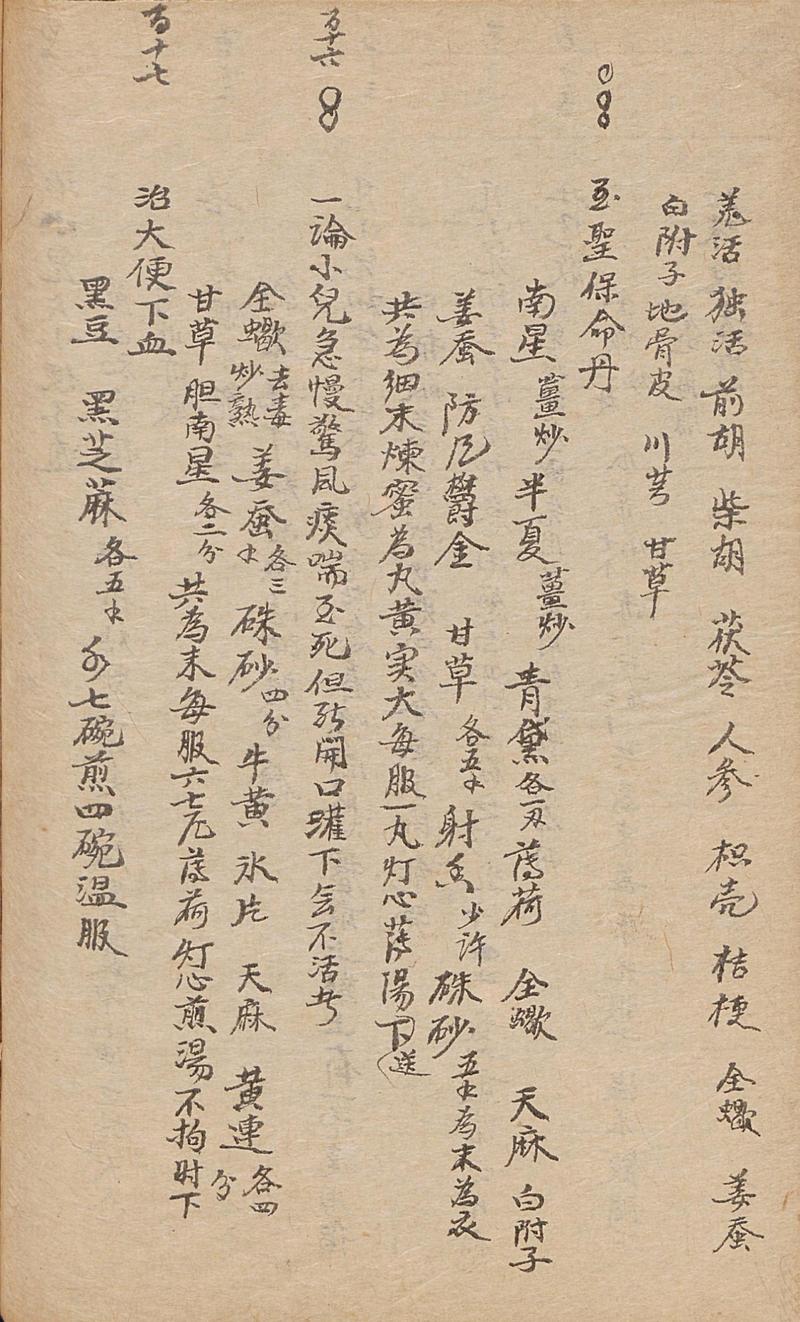 羗活 独活 前胡 柴胡 茯苓 人参 枳壳 桔梗 全蝎 姜蚕
白附子 地骨皮 川芎 甘草
至聖保命丹
南星薑炒 半夏薑炒 青黛各一刄 薄荷 全蝎 天麻 白附子
姜蚕 防风 欝金 甘草各五水 射香少许 硃砂五水為末為衣
共為细末煉蜜為丸黄实大每服一丸灯心薄湯下送
百十六
一論小兒急慢驚風痰喘至死但能開口灌下無不活者
全蝎去毒炒熟 姜蚕各三水 硃砂四分 牛黄 氷片 天麻 黄連各四分
甘草 胆南星各二分 共為末每服六七厘薄荷灯心煎湯不拘时下
百十七
治大便下血
黑豆 黑芝蔴各五水 水七碗煎四碗温服